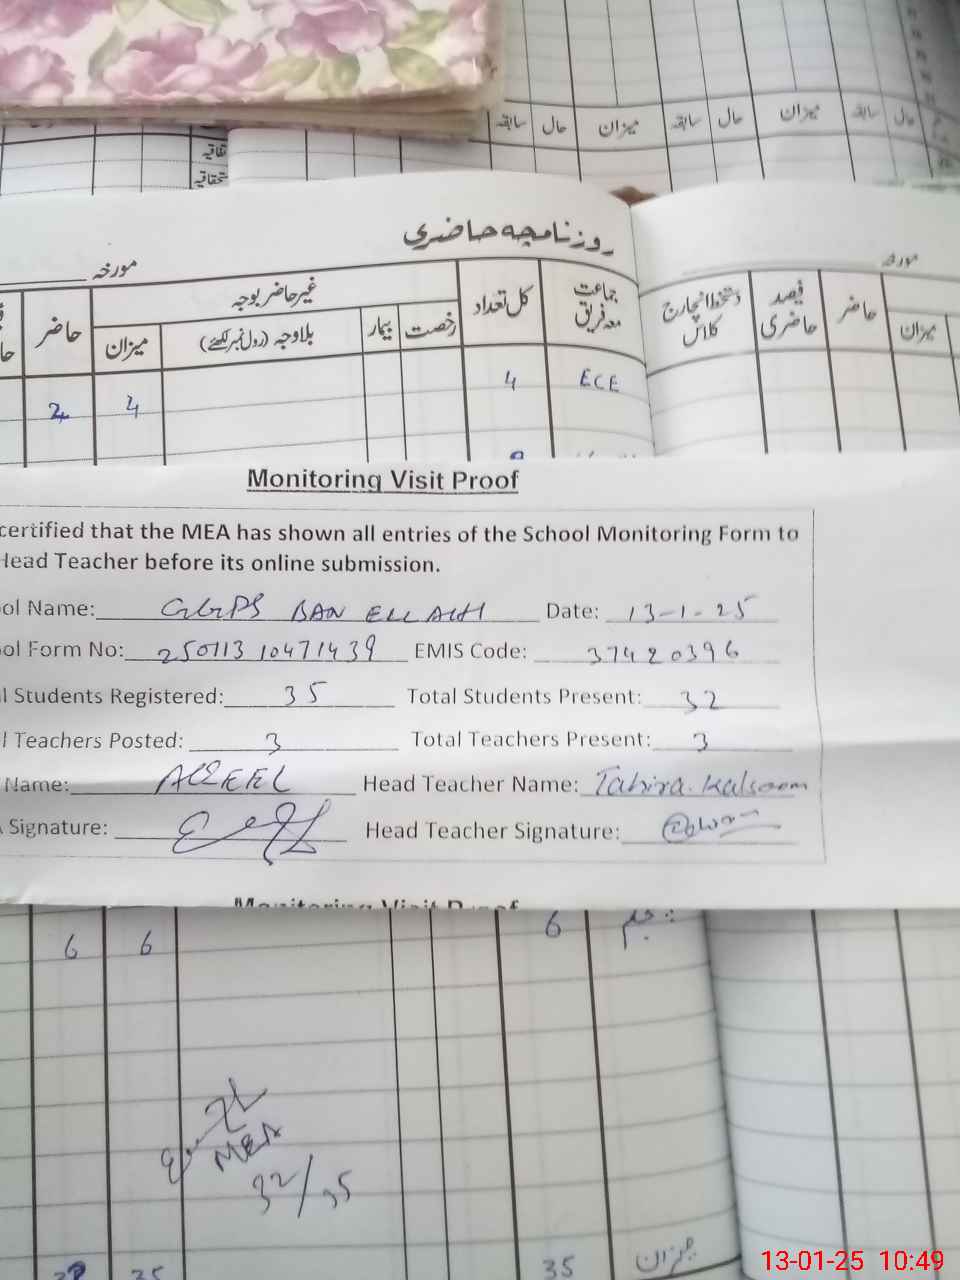 سابقہ حال میزان سابقہ حال میزان سابقہ حال
روزنامچہ حاضری
مورخہ
مورخہ
جماعت معہ فریق
کل تعداد
غیر حاضر بوجہ
رخصت
بیمار
بلاوجہ (رول نمبر لکھئے)
میزان
حاضر
میزان
حاضر
فیصد حاضری
دستخط انچارج کلاس
ECE 4 4 4
Monitoring Visit Proof
certified that the MEA has shown all entries of the School Monitoring Form to
Head Teacher before its online submission.
ol Name: GGPS BAN ELLAHI Date: 13-1-25
ol Form No: 25011310471439 EMIS Code: 37420396
l Students Registered: 35 Total Students Present: 32
l Teachers Posted: 3 Total Teachers Present: 3
Name: AQEEL Head Teacher Name: Tahira Kalsoom
Signature: Head Teacher Signature:
Monitoring Visit Proof
6 6 6 پنجم
MEA
32/35
میزان 35 35 32
13-01-25 10:49